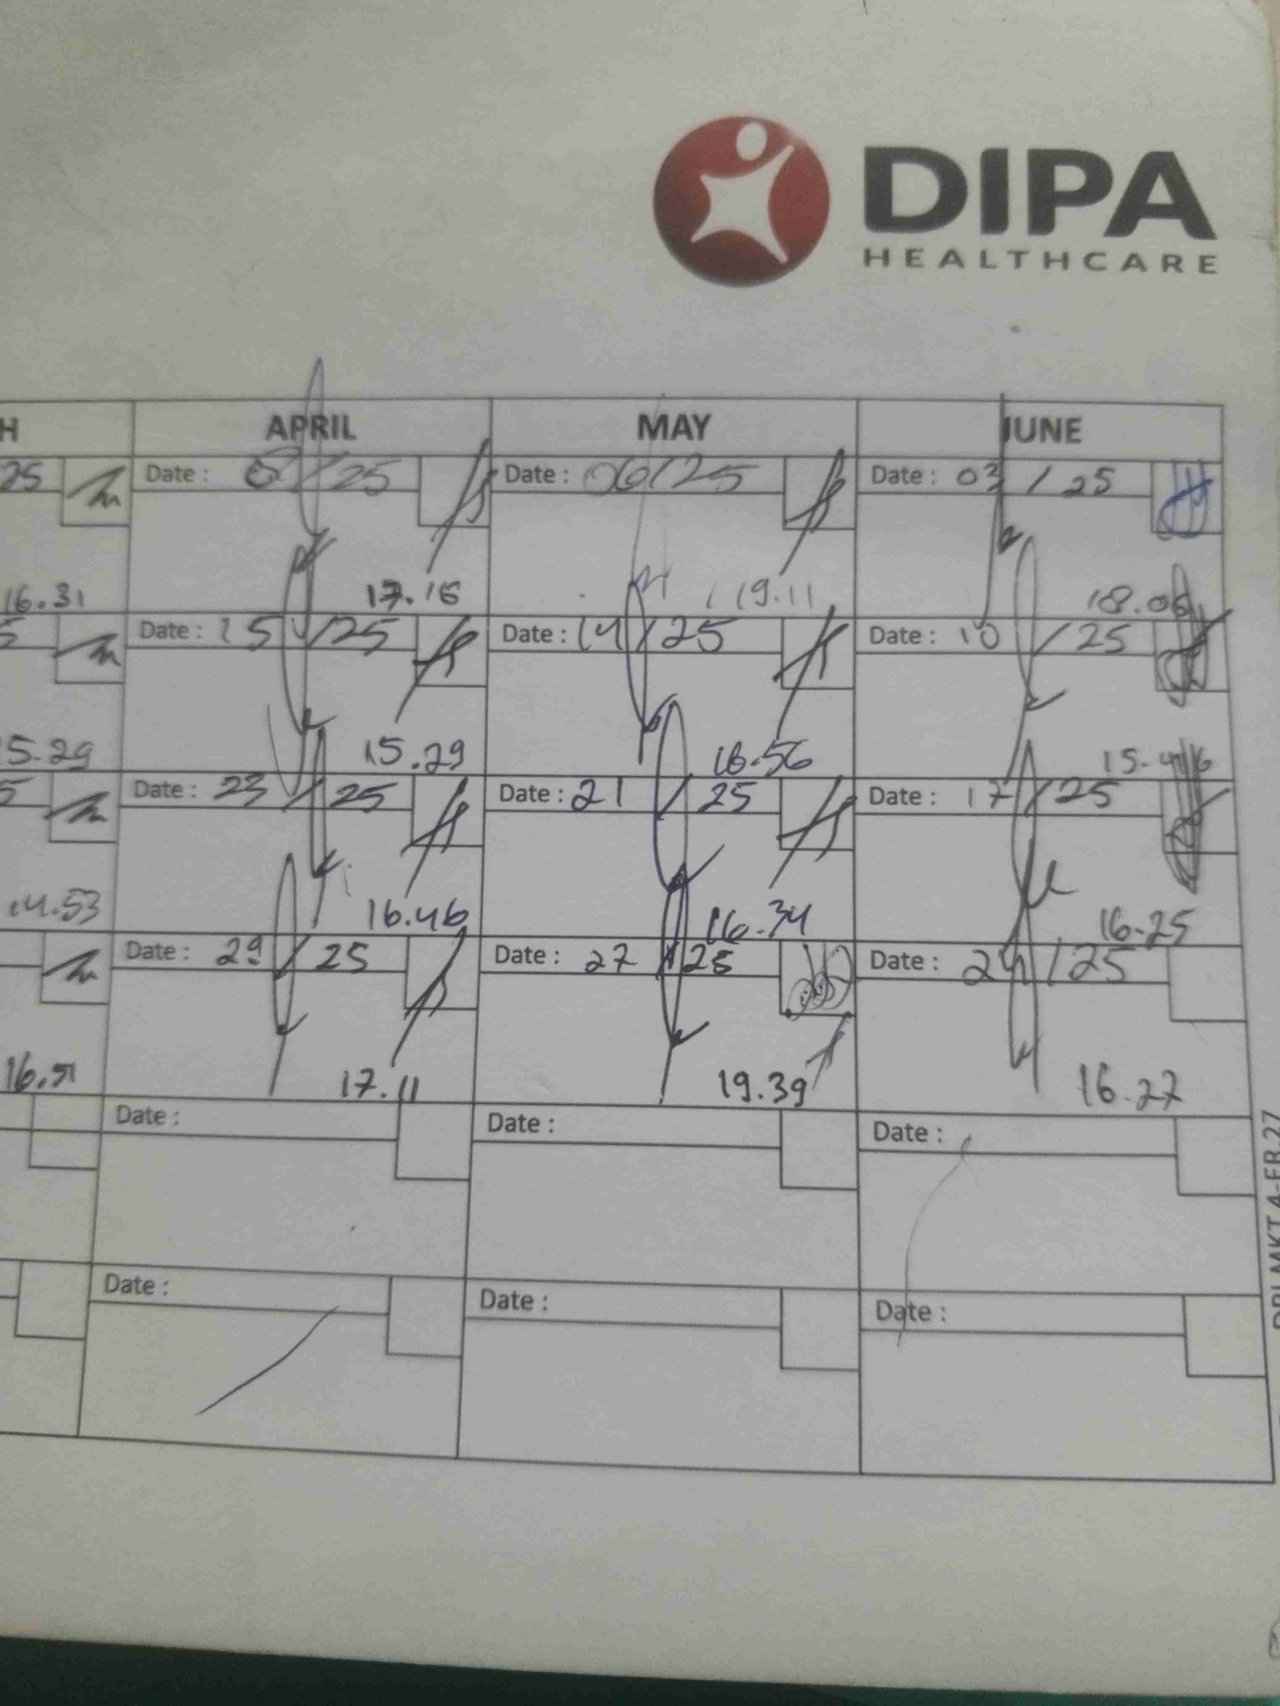 DIPA
HEALTHCARE
H APRIL MAY JUNE
25 Date : 8/25 Date : 06/25 Date : 03 / 25
16.31 17.16 19.11 18.06
5 Date : 15 /25 Date : 14/25 Date : 10 / 25
15.29 15.29 16.56 15.46
5 Date : 23 / 25 Date : 21 / 25 Date : 17 / 25
14.53 16.46 16.34 16.25
Date : 29 / 25 Date : 27 /25 Date : 24 / 25
17.11 19.39 16.27
Date : Date : Date :
Date : Date : Date :